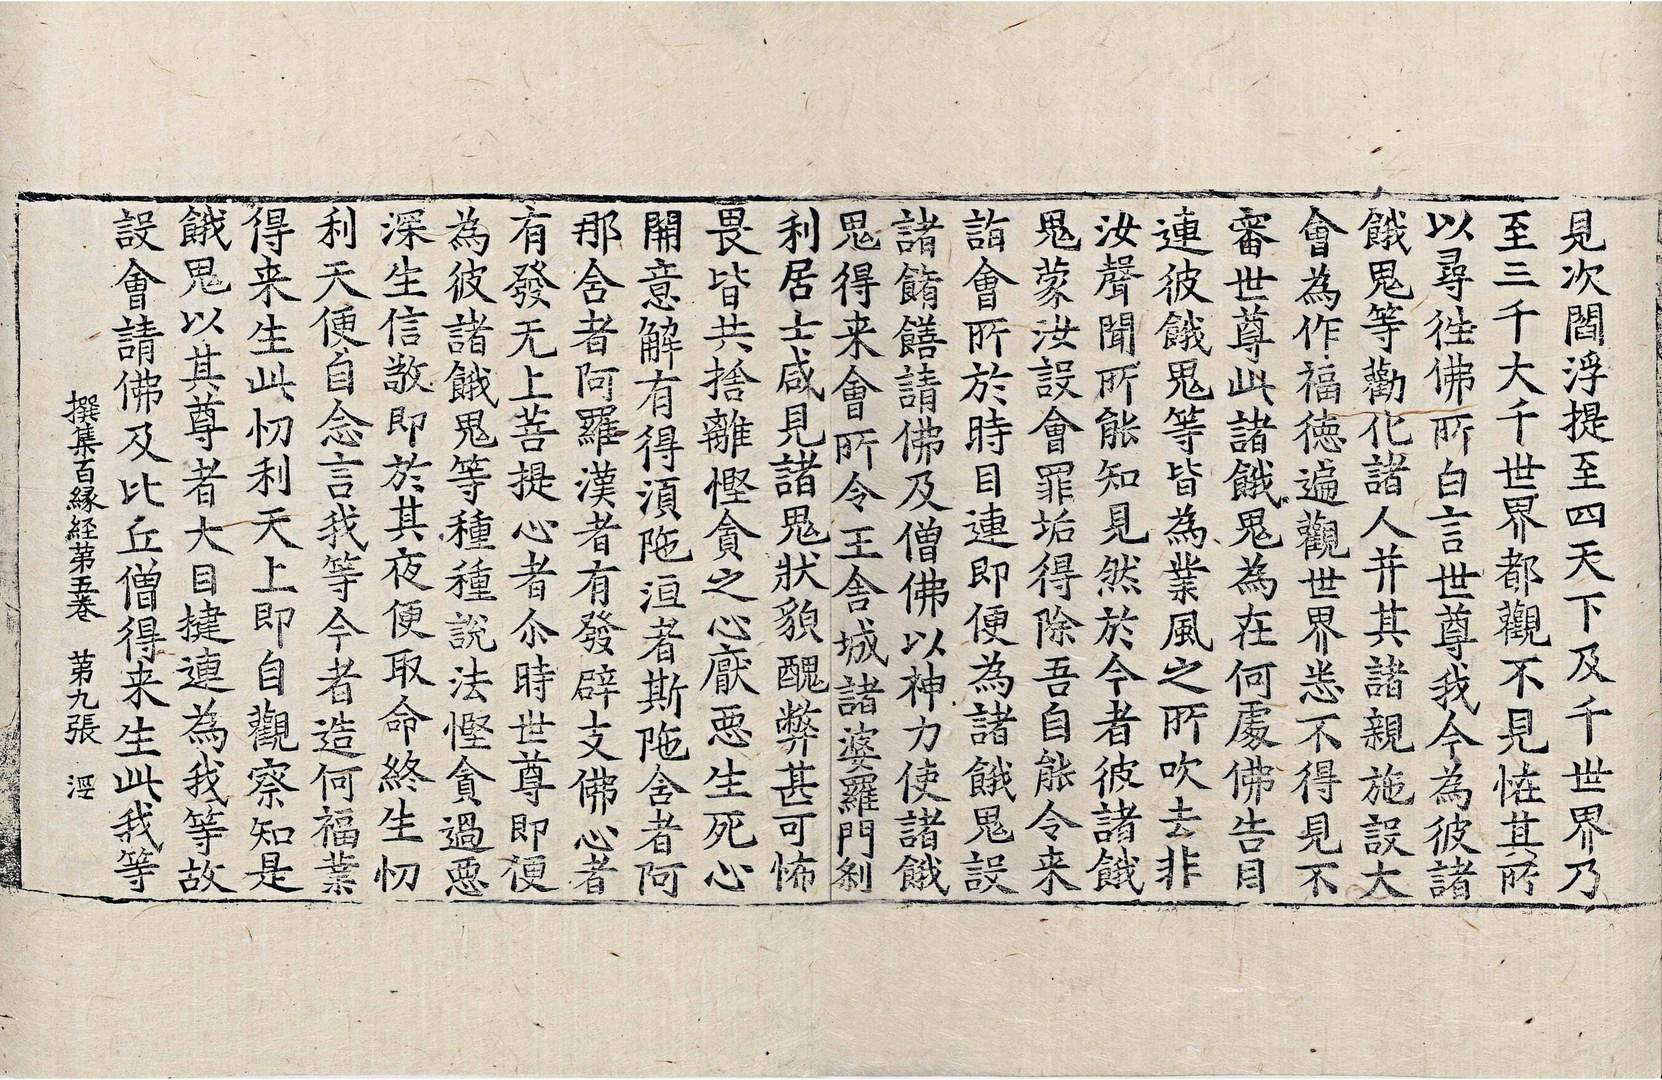 見次閻浮提至四天下及千世界乃
至三千大千世界都觀不見恠其所
以尋徃佛所白言世尊我今為彼諸
餓鬼等勸化諸人并其諸親施設大
會為作福德遍觀世界悉不得見不
審世尊此諸餓鬼為在何處佛告目
連彼餓鬼等皆為業風之所吹去非
汝聲聞所能知見然於今者彼諸餓
鬼蒙汝設會罪垢得除吾自能令来
詣會所於時目連即便為諸餓鬼設
諸餚饍請佛及僧佛以神力使諸餓
鬼得来會所令王舍城諸婆羅門剎
利居士咸見諸鬼狀貌醜弊甚可怖
畏皆共捨離慳貪之心厭惡生死心
開意解有得湏陁洹者斯陁含者阿
那含者阿羅漢者有發辟支佛心者
有發无上菩提心者尒時世尊即便
為彼諸餓鬼等種種說法慳貪過惡
深生信敬即於其夜便取命終生忉
利天便自念言我等今者造何福業
得来生此忉利天上即自觀察知是
餓鬼以其尊者大目揵連為我等故
設會請佛及比丘僧得来生此我等
撰集百緣経第五卷 第九張 涇